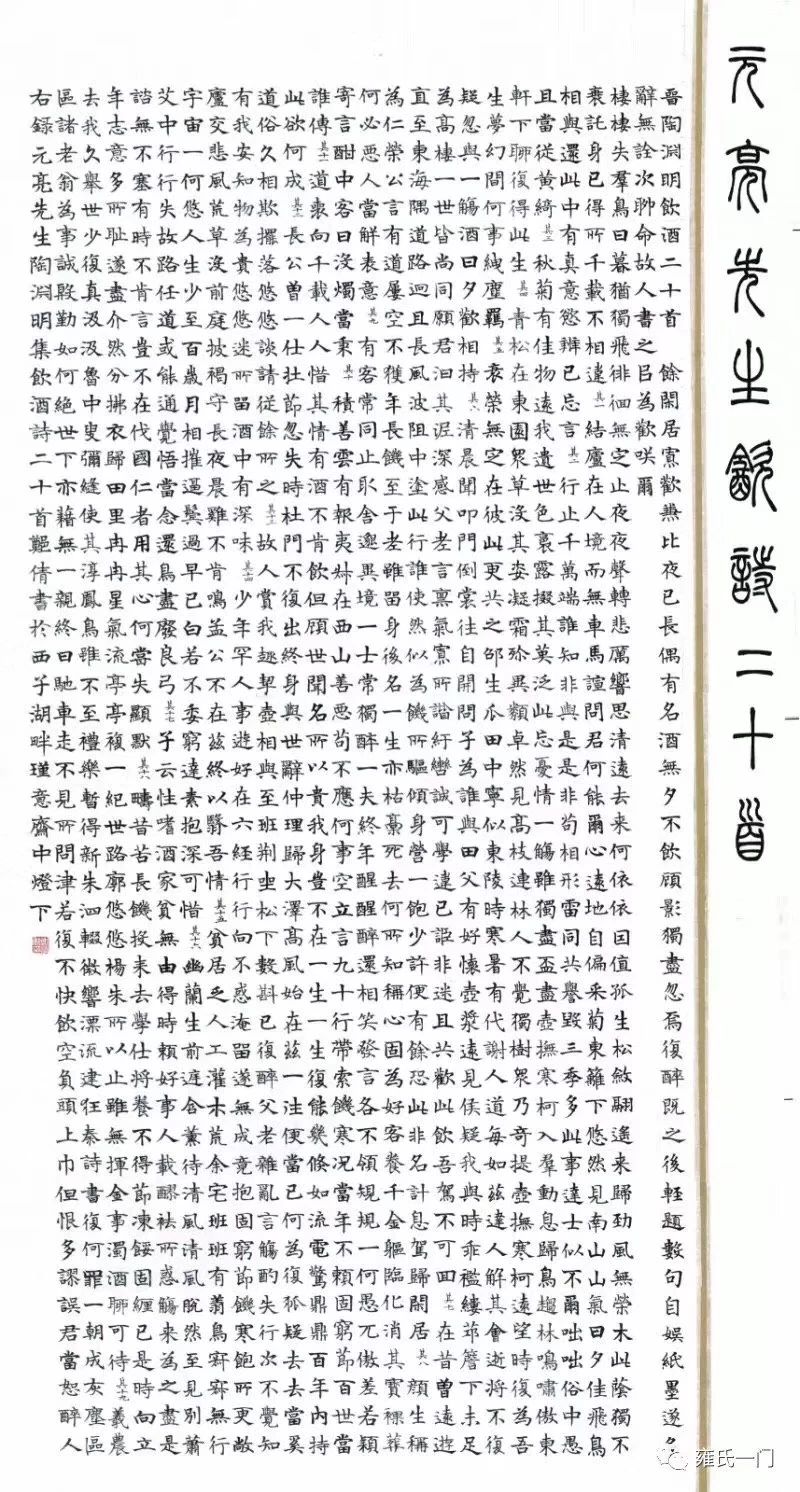 元亮先生飲詩二十首
晉陶淵明飲酒二十首　餘閑居寡歡兼比夜已長偶有名酒無夕不飲顧影獨盡忽焉復醉既之後輊題數句自娛紙墨遂多
辭無詮次聊命故人書之㠯為歡咲爾
棲棲失羣鳥日暮猶獨飛徘徊無定止夜夜聲轉悲厲響思清遠去来何依依因值孤生松斂翮遙来歸勁風無榮木此蔭獨不
衰託身已得所千載不相違其一結廬在人境而無車馬諠問君何能爾心遠地自偏采菊東籬下悠然見南山山氣日夕佳飛鳥
相與還此中有真意慾辨已忘言其二行止千萬端誰知非與是是非苟相形雷同共譽毀三季多此事達士似不爾咄咄俗中愚
且當從黃綺其三秋菊有佳物遠我遺世色裛露掇其英泛此忘憂情一觴雖獨盡盃盡壺撫寒柯入羣動息歸鳥趨林鳴嘯傲東
軒下聊復得此生其四青松在東園眾草没其姿凝霜殄異類卓然見高枝連林人不覺獨樹眾乃奇提壺撫寒柯遠望時復為吾
生夢幻間何事紲塵羈其五衰榮無定在彼此更共之邵生瓜田中寧似東陵時寒暑有代謝人道每如茲達人解其會逝將不復
疑忽與一觴酒日夕歡相持其六清晨聞叩門倒裳往自開問子為誰與田父有好懷壺漿遠見候疑我與時乖襤縷茆簷下未足
為高棲一世皆尚同願君汩其泥深感父老言禀氣寡所諧紆轡誠可學違己詎非迷且共歡此飲吾駕不可回其七在昔曾遠遊
直至東海隅道路迥且長風波阻中塗此行誰使然似為饑所驅傾身營一飽少許便有餘恐此非名計息駕歸閑居其八顏生稱
為仁榮公言有道屢空不獲年長饑至于老雖留身後名一生亦枯槁死去何所知稱心固為好客養千金軀臨化消其寶裸葬
何必惡人當解表意其九有客常同止取舍邈異境一士常獨醉一夫終年醒醒醉還相笑發言各不領規規一何愚兀傲差若穎
寄言酣中客日没燭當秉其十積善雲有報夷姊在西山善惡苟不應何事空立言九十行帶索饑寒況當年不賴固窮節百世當
誰傳其十一道喪向千載人人惜其情有酒不肯飲但顧世聞名所以貴我身豈不在一生一生復能幾倏如流電驚鼎鼎百年内持
此欲何成其十二長公曾一仕壮節忽失時杜門不復出終身與世辭仲理歸大澤高風始在茲一注便當已何為復狐疑去去當奚
道俗久相欺擺落悠悠談請從餘所之其十三故人賞我趣挈壺相與至班荊坐松下數斟已復醉父老雜亂言觴酌失行次不覺知
有我安知物為貴悠悠迷所留酒中有深味其十四少年罕人事遊好在六經行行向不惑淹留遂無成竟抱固窮節饑寒飽所更敝
廬交悲風荒草没前庭披褐守長夜晨雞不肯鳴孟公不在茲終以翳吾情其十五貧居乏人工灌木荒余宅班班有翔鳥寂寂無行
宇宙一何悠人生少至百歲月相摧逼鬢過早已白若不委窮達素抱深可惜其十六幽蘭生前庭含薰待清風清風脫然至見別蕭
艾中行行失故路任道或能通覺悟當念還鳥盡廢良弓其十七子云性嗜酒家貧無由得時賴好事人載醪袪所惑觴来為之盡是
諮無不塞有時不肯言豈不在伐國仁者用其心何嘗失顯默其十八疇昔苦長饑投耒去學仕將養不得節凍餒固纏已是時向立
年志意多所耻遂盡介然分拂衣歸田里冉冉星氣流亭亭複一紀世路廓悠悠楊朱所以止雖無揮金事濁酒聊可待其十九羲農
去我久舉世少復真汲汲魯中叟彌縫使其淳鳳鳥雖不至禮樂暫得新朱泗輟微響漂流逮狂秦詩書復何罪一朝成灰塵區
區諸老翁為事誠殷勤如何絕世下亦藉無一親終日馳車走不見所問津若復不快飲空負頭上巾但恨多謬誤君當恕醉人
右錄元亮先生陶淵明集飲酒詩二十首鼴倩書於西子湖畔瑾意齋中燈下
雍氏一门